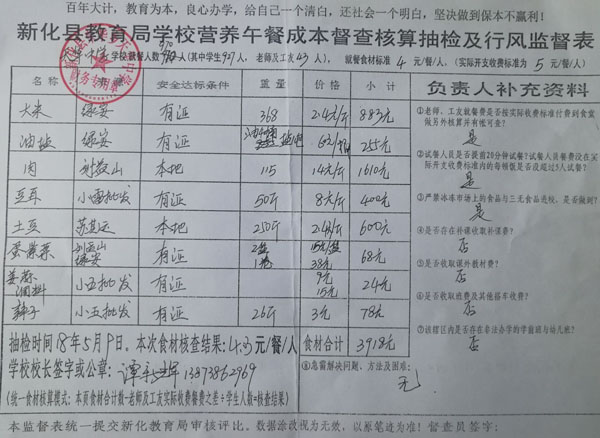 百年大计,教育为本,良心办学,给自己一个清白,还社会一个明白,坚决做到保本不赢利!
新化县教育局学校营养午餐成本督查核算抽检及行风监督表
学校就餐人数 970 人(其中学生927人,老师及工友43人),就餐食材标准 4 元/餐/人,(实际开支收费标准为 5 元/餐/人)
名称 安全达标条件 重量 价格 小计 负责人补充资料
大米 绿安 有证 368 2.4元/斤 883元
油盐 绿安 有证 255元
肉 本地 115 14元/斤 1610元
豆耳 小雷批发 有证 50斤 8元/斤 400元
土豆 本地 250斤 2.4元/斤 600元
绿安 有证 38元 68元
调料 小玉批发 有证 9元 15元 24元
辣子 小玉批发 有证 26斤 3元 78元
抽检时间18年5月9日。本次食材核查结果:4.3元/餐/人 食材合计 3918元
学校校长签字或公章: 13873862969
(统一食材核算模式:本页食材合计数-老师及工友实际收费餐费之差÷学生人数=核查结果)
①老师、工友就餐费是否按实际收费标准付费到食堂做另外核算并有帐可查?
是
②试餐人员是否提前20分钟试餐?试餐人员餐费没在实际开支收费标准内的每顿饭是否没超过5人试餐?
是
③严禁冰冻市场上的食品与三无食品进校,是否做到?
是
④是否存在补课收取补课费?
否
⑤是否收取课外教材费?
否
⑥是否收取班费及其他搭车收费?
否
⑦该辖区内是否存在非法办学的学前班与幼儿班?
否
⑧急需解决问题、方法及困难:
无
本监督表统一提交新化教育局审核评比。数据涂改视为无效,以原笔迹为准!督查员签字: